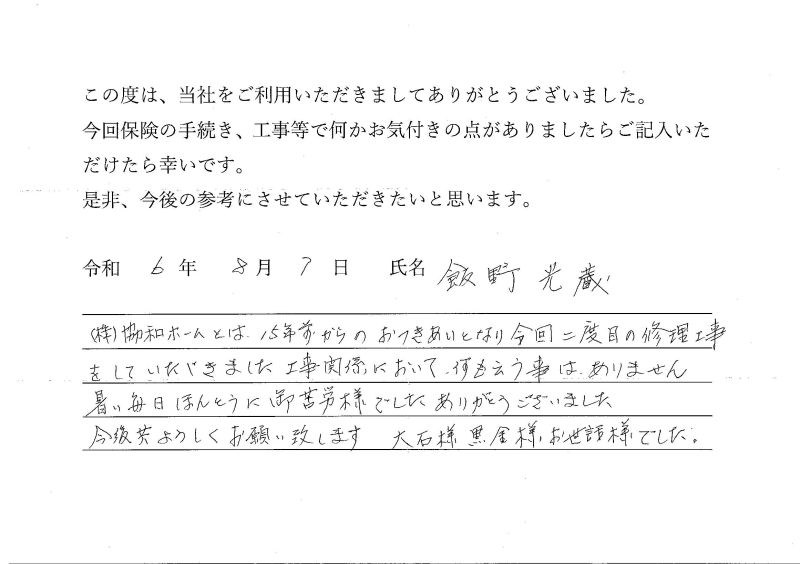 この度は、当社をご利用いただきましてありがとうございました。
今回保険の手続き、工事等で何かお気付きの点がありましたらご記入いた
だけたら幸いです。
是非、今後の参考にさせていただきたいと思います。
令和 6 年 8 月 7 日 氏名 飯野光蔵
(株)協和ホームとは、15年前からのおつきあいとなり今回二度目の修理工事
をしていただきました 工事関係において、何も云う事は、ありません
暑い毎日ほんとうに御苦労様でした ありがとうございました
今後共よろしくお願い致します 大石様 黒金様、お世話様でした。